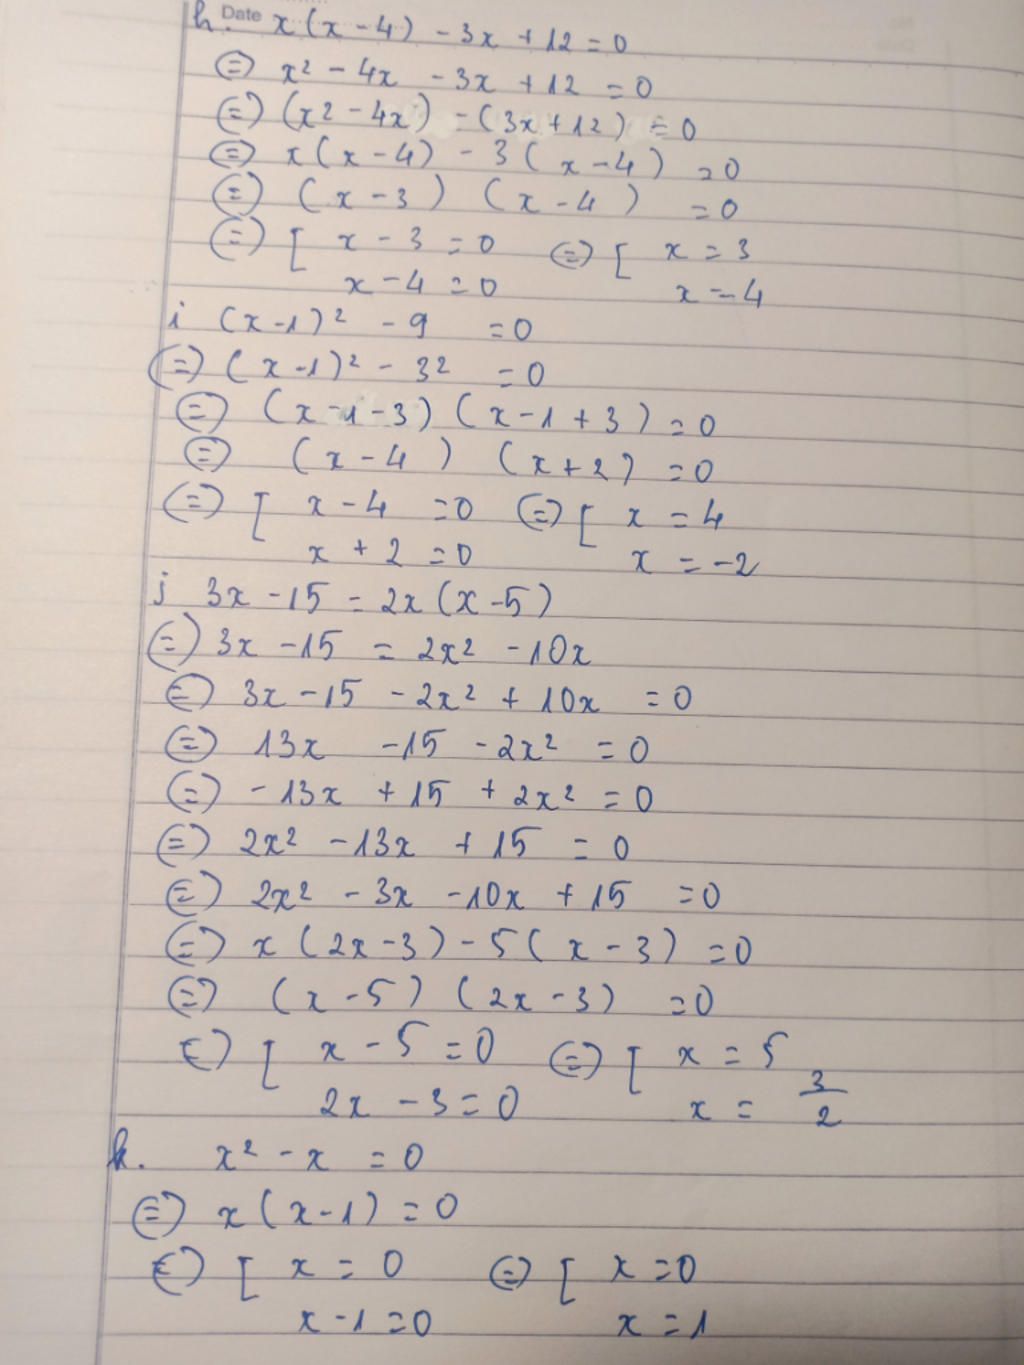 Date
h. x(x-4) - 3x + 12 = 0
⇔ x² - 4x - 3x + 12 = 0
⇔ (x² - 4x) - (3x + 12) = 0
⇔ x(x-4) - 3(x-4) = 0
⇔ (x-3) (x-4) = 0
⇔ [ x - 3 = 0 ⇔ [ x = 3
x - 4 = 0 x = 4
i (x-1)² - 9 = 0
⇔ (x-1)² - 3² = 0
⇔ (x-1-3) (x-1+3) = 0
⇔ (x-4) (x+2) = 0
⇔ [ x - 4 = 0 ⇔ [ x = 4
x + 2 = 0 x = -2
j 3x - 15 = 2x(x-5)
⇔ 3x - 15 = 2x² - 10x
⇔ 3x - 15 - 2x² + 10x = 0
⇔ 13x - 15 - 2x² = 0
⇔ - 13x + 15 + 2x² = 0
⇔ 2x² - 13x + 15 = 0
⇔ 2x² - 3x - 10x + 15 = 0
⇔ x(2x-3) - 5(x-3) = 0
⇔ (x-5) (2x-3) = 0
⇔ [ x - 5 = 0 ⇔ [ x = 5
2x - 3 = 0 x = 3/2
k. x² - x = 0
⇔ x(x-1) = 0
⇔ [ x = 0 ⇔ [ x = 0
x - 1 = 0 x = 1